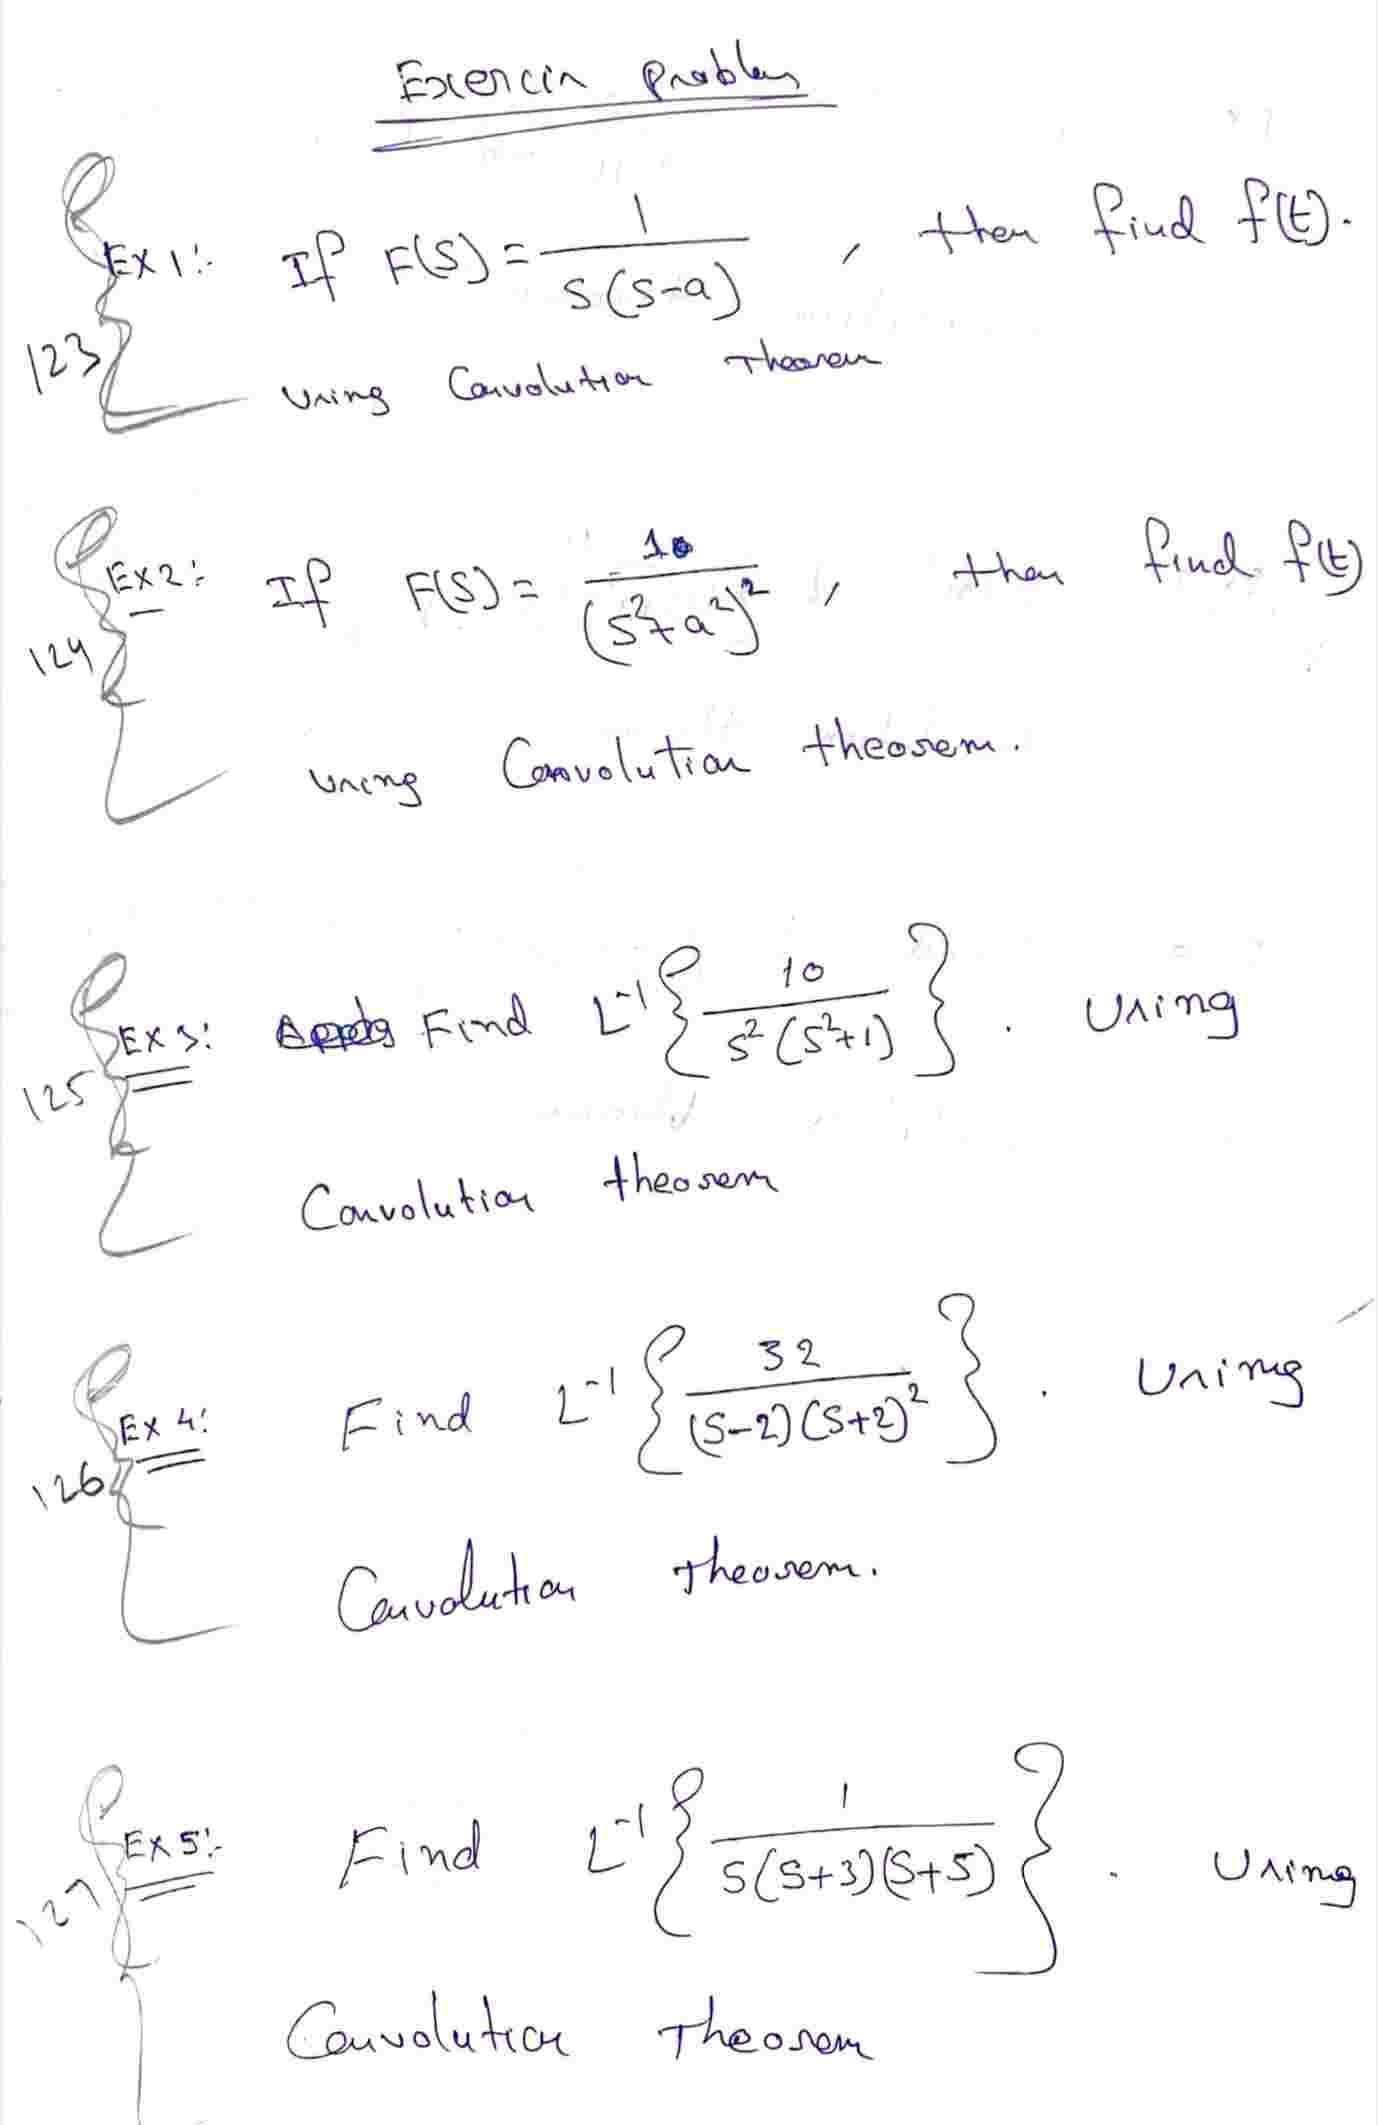 Exercin problem
EX 1:- If F(S) = 1 / S(S-a) , then find f(t).
123
Using Convolution Theorem
EX2: If F(S) = 10 / (S²+a²)² , then find f(t)
124
using Convolution theorem.
EX 3: Find L⁻¹{ 10 / S²(S²+1) } . Using
125
Convolution theorem
EX 4: Find L⁻¹{ 32 / (S-2)(S+2)² } . Using
126
Convolution Theorem.
EX 5:- Find L⁻¹{ 1 / S(S+3)(S+5) } . Using
127
Convolution Theorem